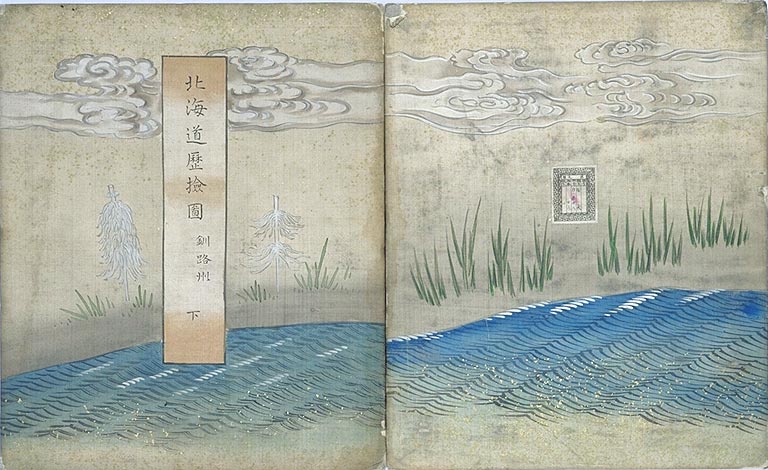 北海道歴撿圖
釧路州
下